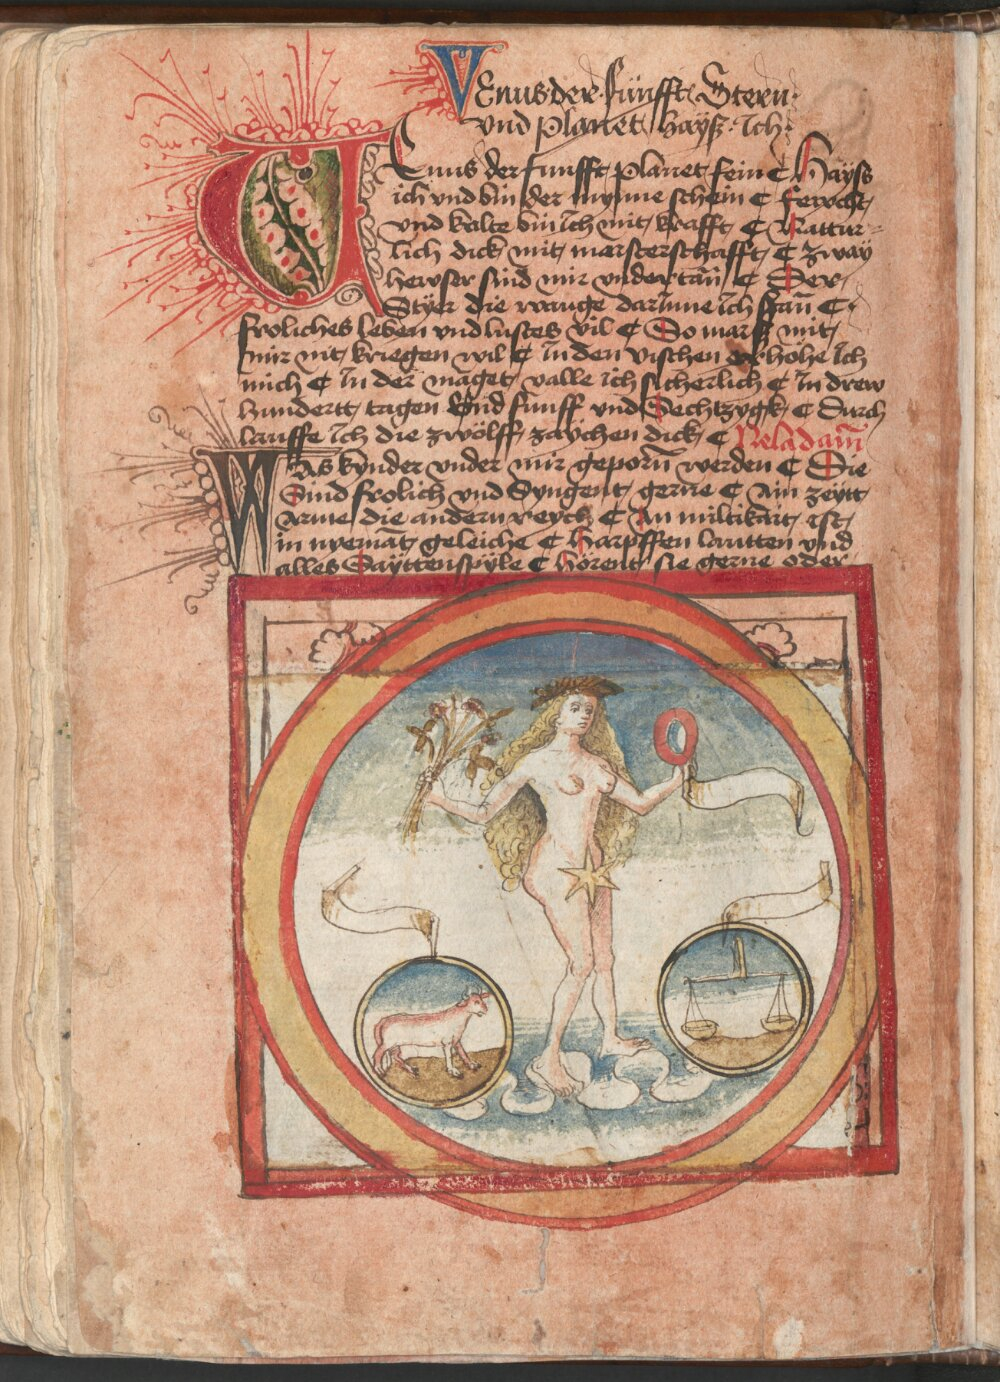 VEnus der Fünfft Stern
vnd planet hayß Ich
VEnus der funfft planet fein C Hayss
ich vnd bin der mynne schein C Fewcht
vnd kalte bin Ich mit krafft C Nattur
lich dick mit maisterschafft C zway
hewser sind mir vndertan C Der
Styer die wauge darinne ich han C
froliches leben vnd lustes vil C So mars mit
mir nit kriegen wil C In den vischen erhohe Ich
mich C In der maget valle ich sicherlich C In drew
hundertt tagen Vnd funff vnd Sechtzygk C Durch
lauffe Ich die zwölff zaychen dick C
WAs kynder vnder mir geporn werden C Die
Sind frolich vnd Syngent gerne C Ain zeytt
Arme die andern reych C An miltikait ist
in nyemat geleiche C Harpffen lautten vnd
alles Sayttenspyle C hörent sie gerne oder